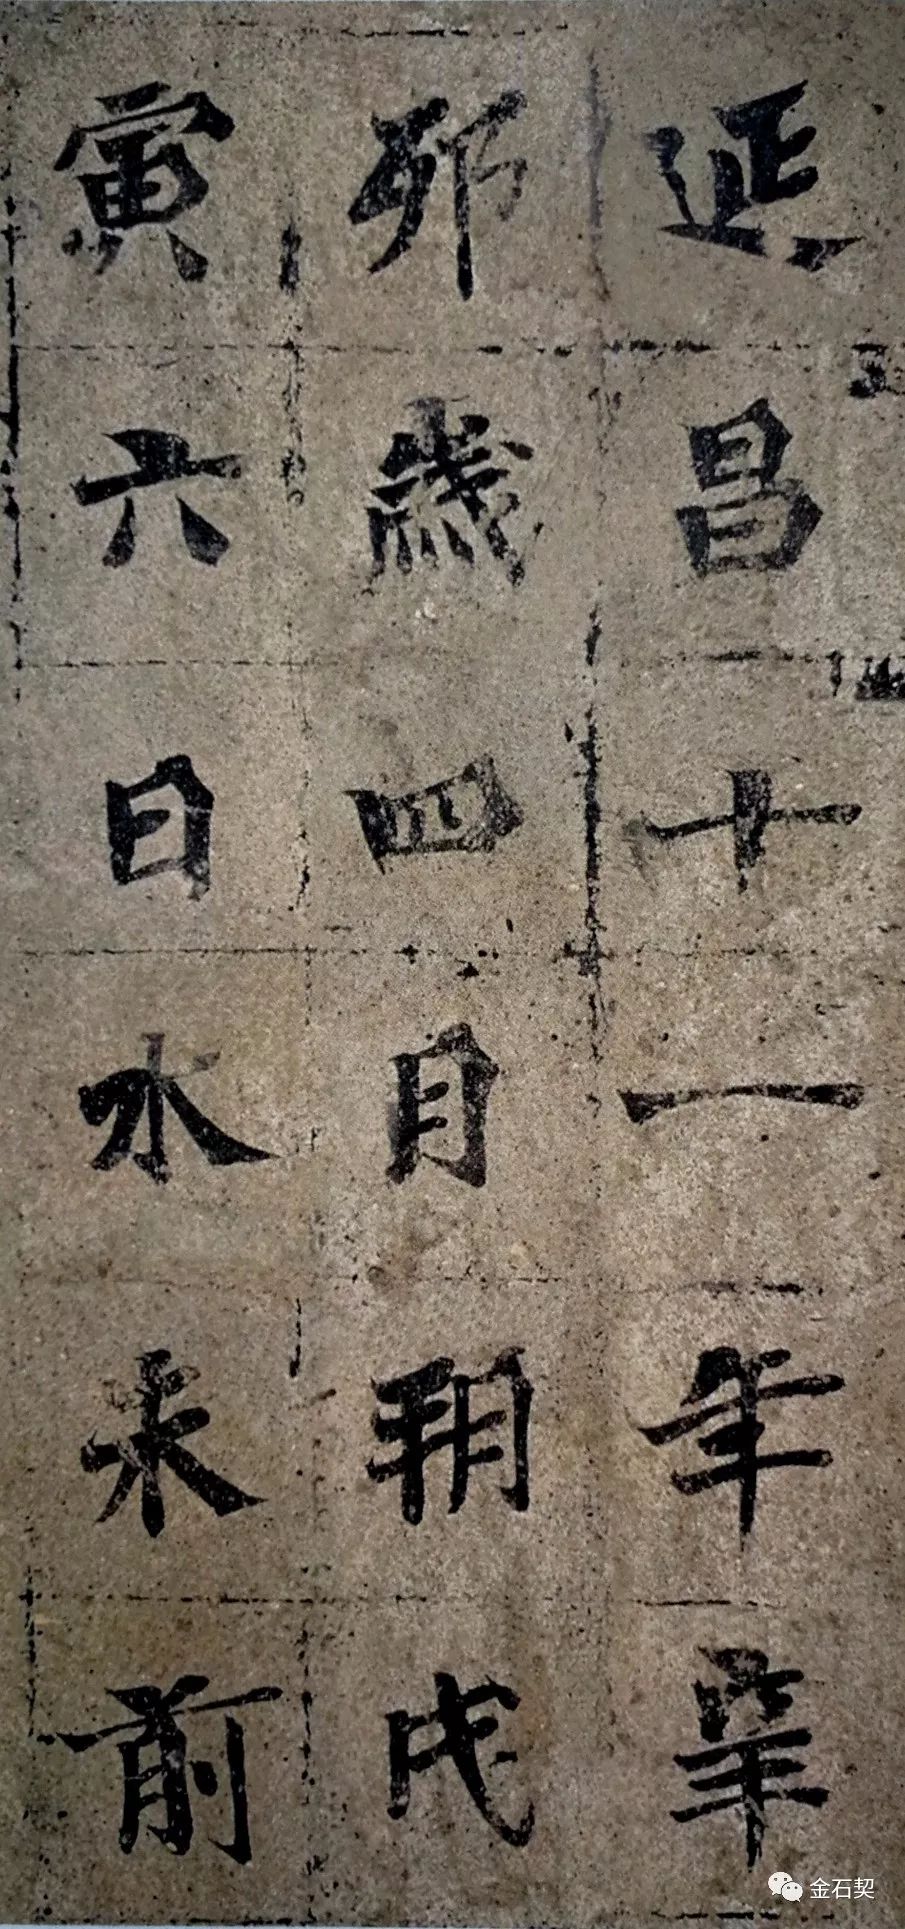 延昌十一年辛
卯歲四月朔戊
寅六日水未前
金石契